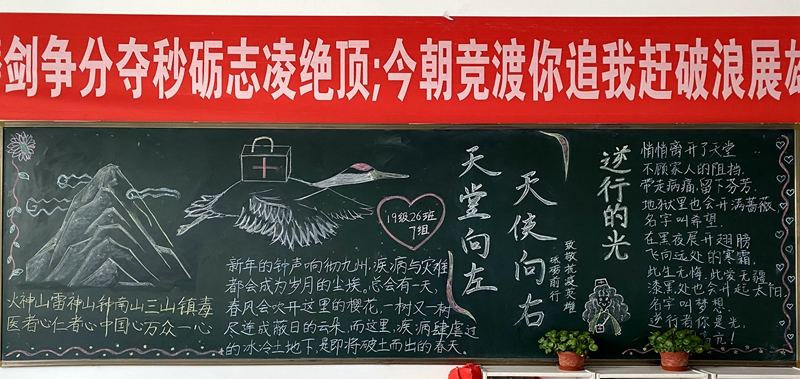 剑争分夺秒砺志凌绝顶;今朝竞渡你追我赶破浪展
火神山雷神山钟南山三山镇毒
医者心仁者心中国心万众一心
19级26班
7组
新年的钟声响彻九州,疾病与灾难
都会成为岁月的尘埃,总会有一天,
春风会吹开这里的樱花,一树又一树
尺连成蔽日的云朱,而这里,疾病肆虐过
的冰冷土地下,是即将破土而出的春天。
天堂向左
天使向右
致敬抗疫英雄
砥砺前行
逆行的光
悄悄离开了天堂
不顾家人的阻挡
带走病痛,留下芬芳.
地狱里也会开满蔷薇
名字叫希望.
在黑夜展开翅膀
飞向远处的寒霜.
此生无悔,此爱无疆
漆黑处也会开起太阳
名字叫梦想.
逆行者你是光,
亢!